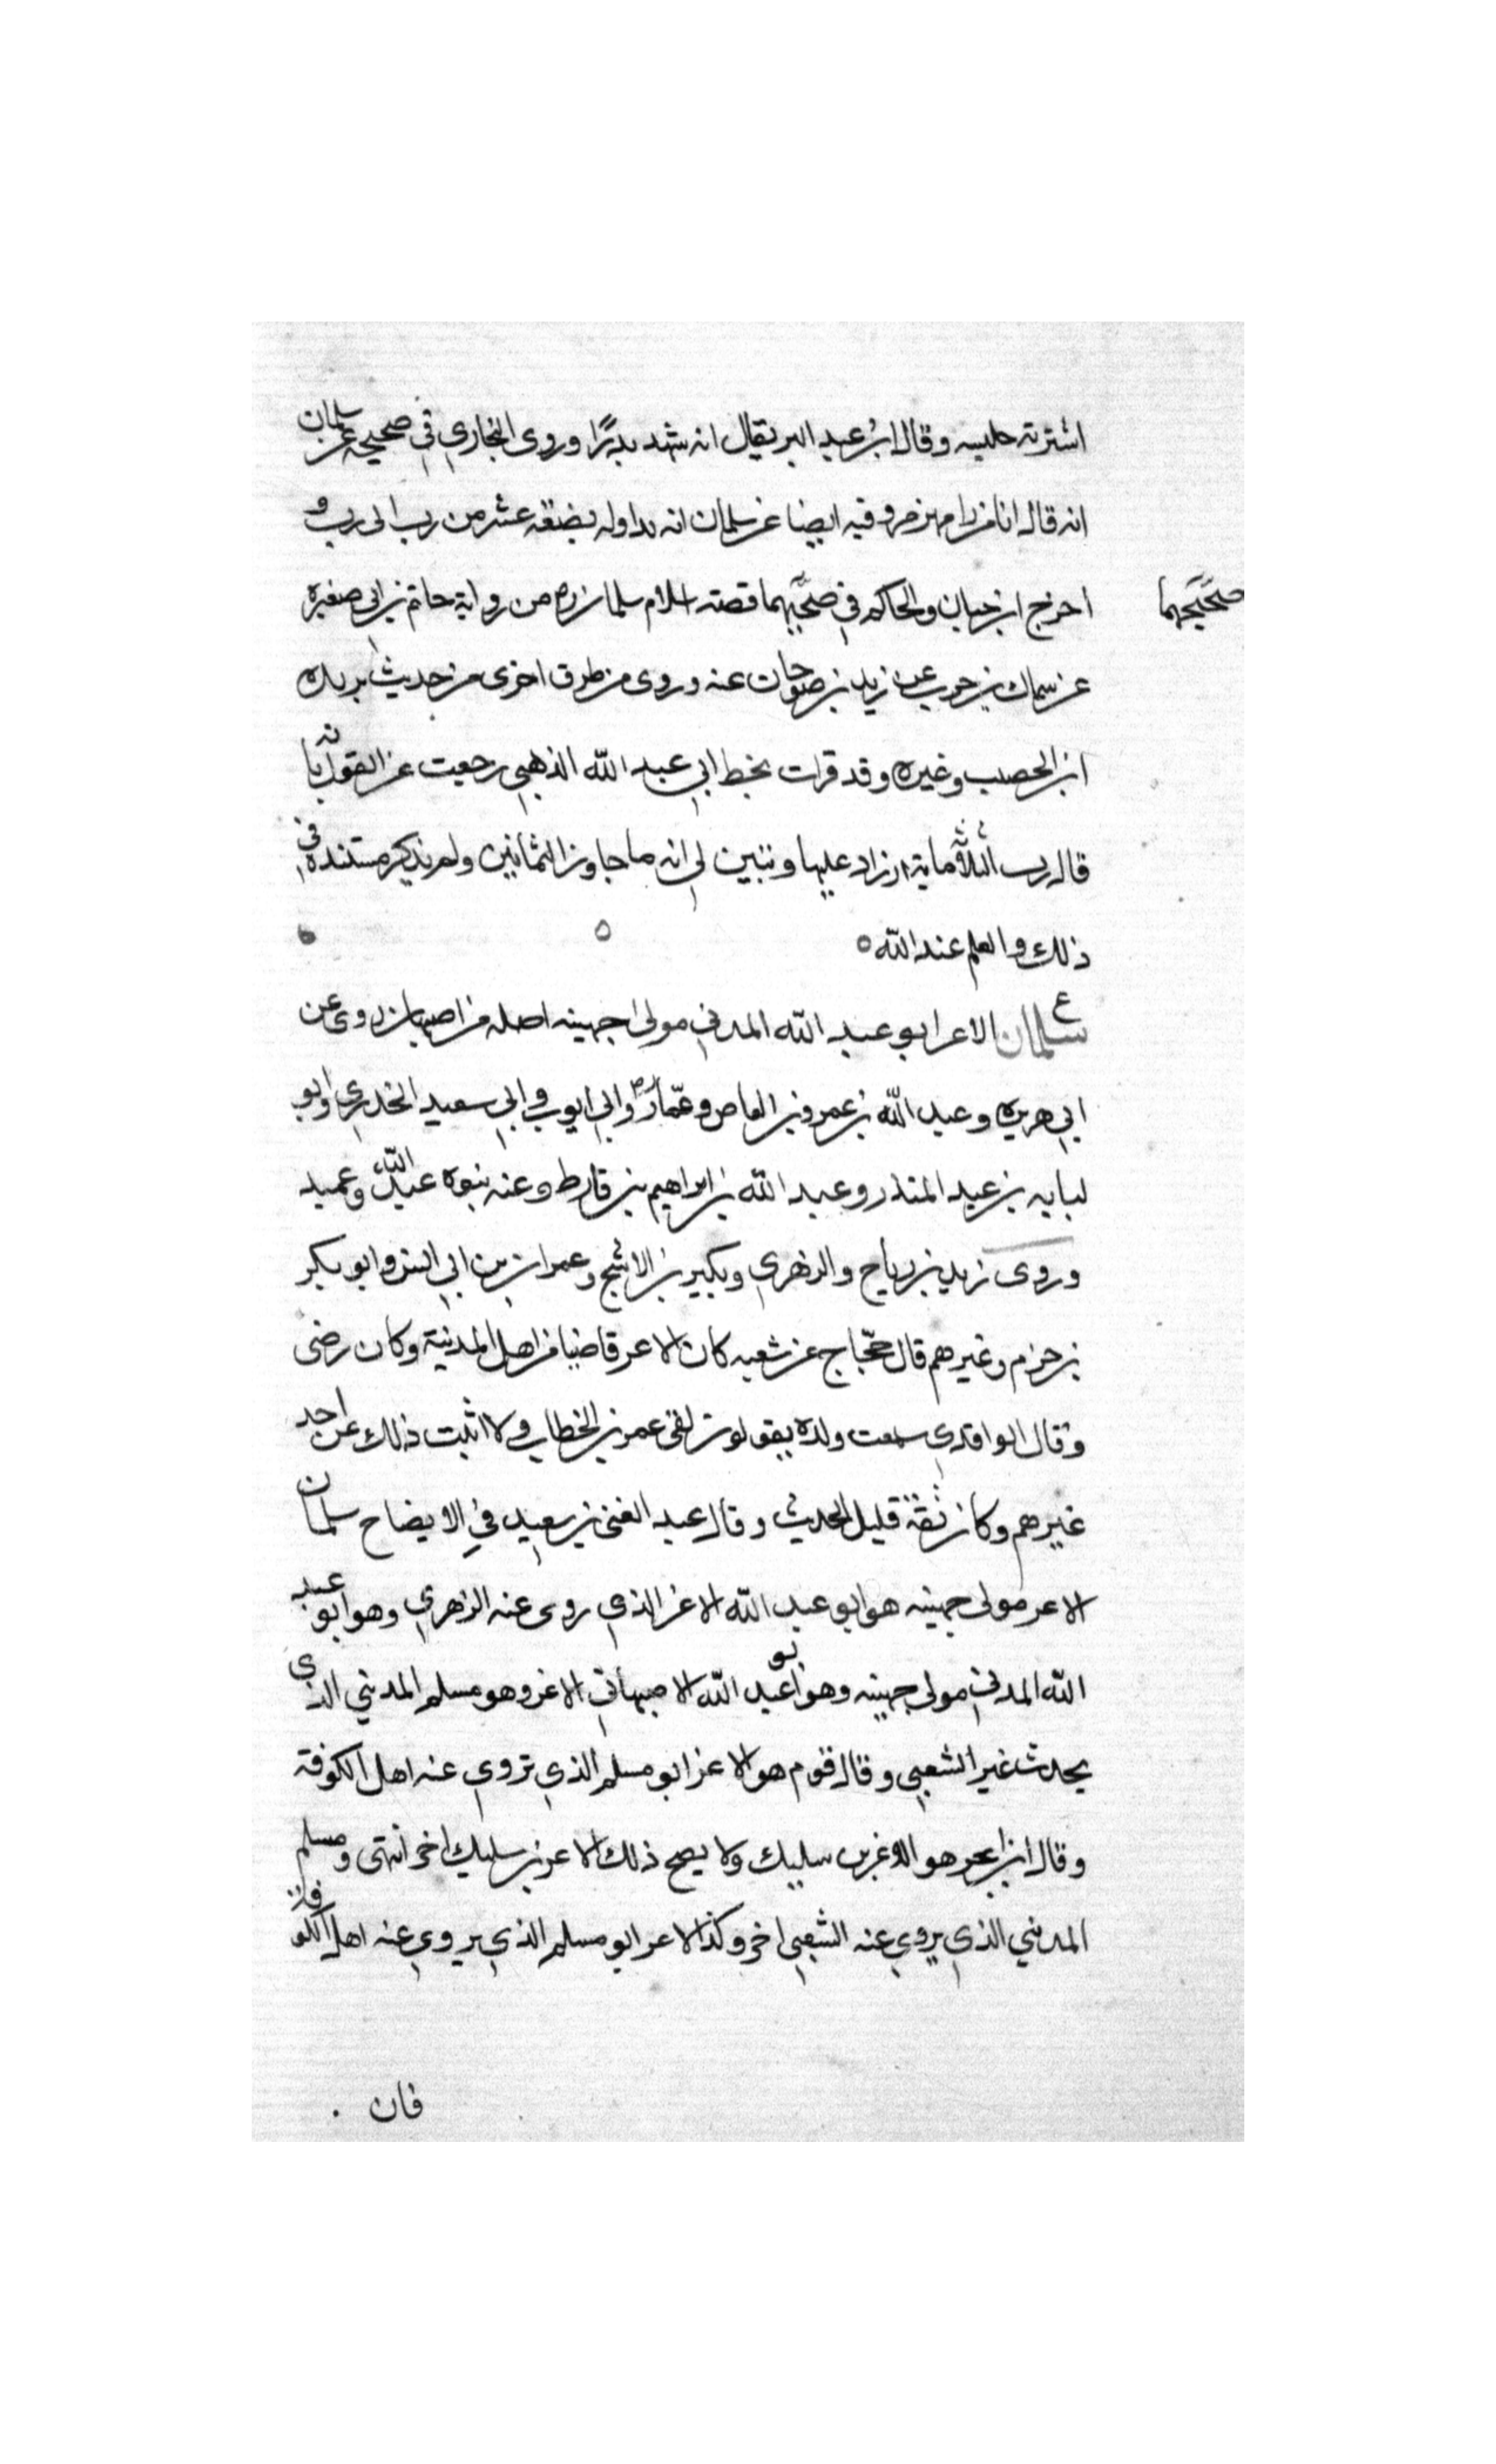 اشترته حليسه وقال ابن عبد البر يقال انه شهد بدرًا وروى البخاري في صحيحه عن سلمان
انه قال انا من رام هرمز وفيه ايضا عن سلمان انه تداوله بضعة عشر من رب الى رب و
اخرج ابن حبان والحاكم في صحيحيهما قصة اسلام سلمان من رواية حاتم بن ابي صغيره
صحيحيهما
عن سماك بن حرب عن زيد بن صوحان عنه وروى من طرق اخرى من حديث بريده
ابن الحصيب وغيره وقد قرات بخط ابي عبد الله الذهبي رجعت عن القول بانه
قارب الثلاثماية او زاد عليها وتبين لي انه ما جاوز الثمانين ولم يذكر مستنده في
ذلك والعلم عند الله
ع
سلمان الاغر ابو عبد الله المدني مولى جهينه اصله من اصبهان روى عن
ابي هريره وعبد الله بن عمرو بن العاص وعمار وابي ايوب وابي سعيد الخدري وابو
لبابه بن عبد المنذر وعبد الله بن ابراهيم بن قارط وعنه بنوه عبد الله وعبيد
وروى زيد بن رباح والزهري وبكير بن الاشج وعمران بن ابي انس وابو بكر
بن حزم وغيرهم قال حجاج عن شعبه كان الاغر قاضيا من اهل المدينة وكان رضى
وقال الواقدي سمعت ولده يقولون لقي عمر بن الخطاب ولا اثبت ذلك عن احد
غيرهم وكان ثقة قليل الحديث وقال عبد الغني بن سعيد في الايضاح سلمان
الاغر مولى جهينه هو ابو عبد الله الاغر الذي روى عنه الزهري وهو ابو عبد
الله المدني مولى جهينه وهو ابو عبد الله الاصبهاني الاغر وهو مسلم المديني الذي
يحدث غير الشعبي وقال قوم هو الاغر ابو مسلم الذي تروي عنه اهل الكوفة
وقال ابن ابجر هو الاغر بن سليك ولا يصح ذلك الاغر بن سليك اخر انتهى ومسلم
المديني الذي يروي عنه الشعبي اخر وكذا الاغر ابو مسلم الذي يروي عنه اهل الكوفة
فان